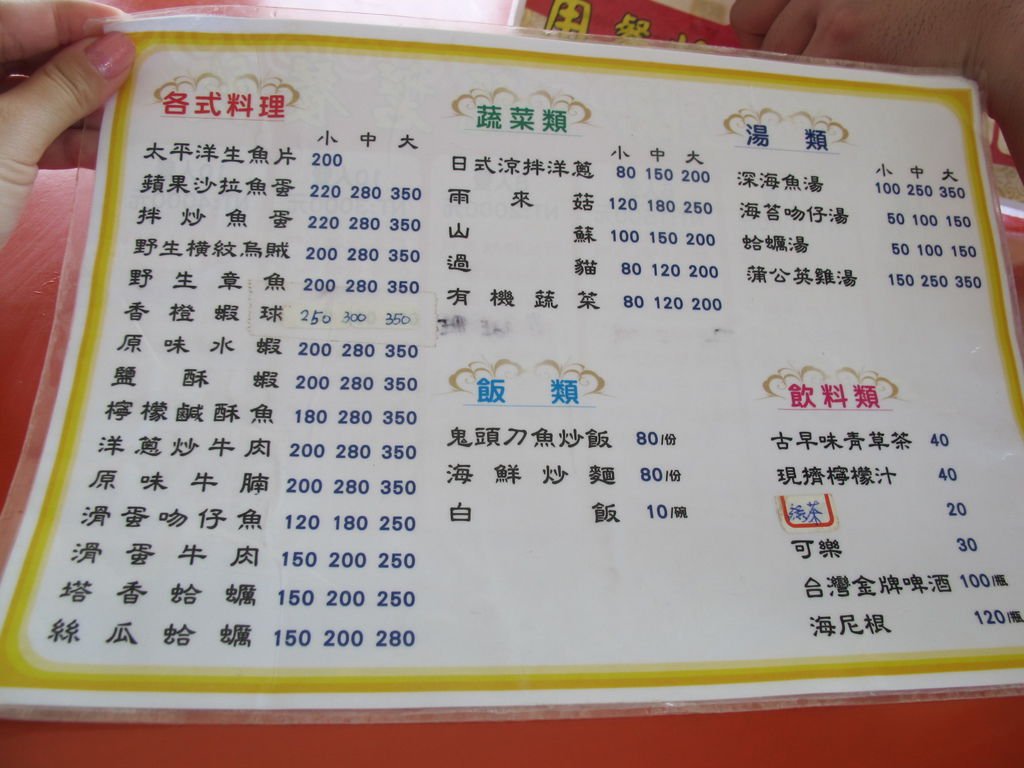 用餐
各式料理
小 中 大
太平洋生魚片 200
蘋果沙拉魚蛋 220 280 350
拌炒魚蛋 220 280 350
野生橫紋烏賊 200 280 350
野生章魚 200 280 350
香橙蝦球 250 300 350
原味水蝦 200 280 350
鹽酥蝦 200 280 350
檸檬鹹酥魚 180 280 350
洋蔥炒牛肉 200 280 350
原味牛腩 200 280 350
滑蛋吻仔魚 120 180 250
滑蛋牛肉 150 200 250
塔香蛤蠣 150 200 250
絲瓜蛤蠣 150 200 280
蔬菜類
小 中 大
日式涼拌洋蔥 80 150 200
雨來菇 120 180 250
山蘇 100 150 200
過貓 80 120 200
有機蔬菜 80 120 200
飯類
鬼頭刀魚炒飯 80/份
海鮮炒麵 80/份
白飯 10/碗
湯類
小 中 大
深海魚湯 100 250 350
海苔吻仔湯 50 100 150
蛤蠣湯 50 100 150
蒲公英雞湯 150 250 350
飲料類
古早味青草茶 40
現擠檸檬汁 40
綠茶 20
可樂 30
台灣金牌啤酒 100/瓶
海尼根 120/瓶